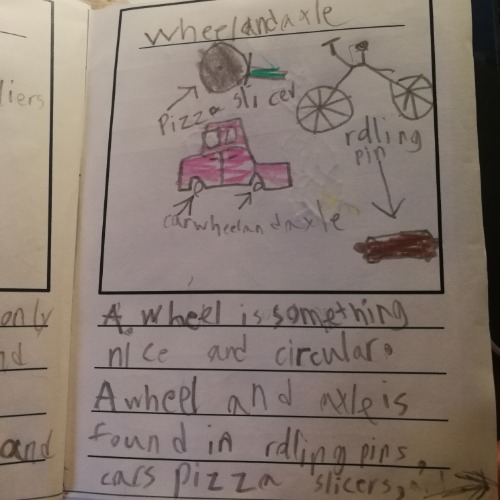 liers
only
nd
and
wheelandaxle
Pizza slicer
rolling
pin
carwheelandaxle
A wheel is something
nice and circular.
A wheel and axle is
found in rolling pins,
cars pizza slicers,